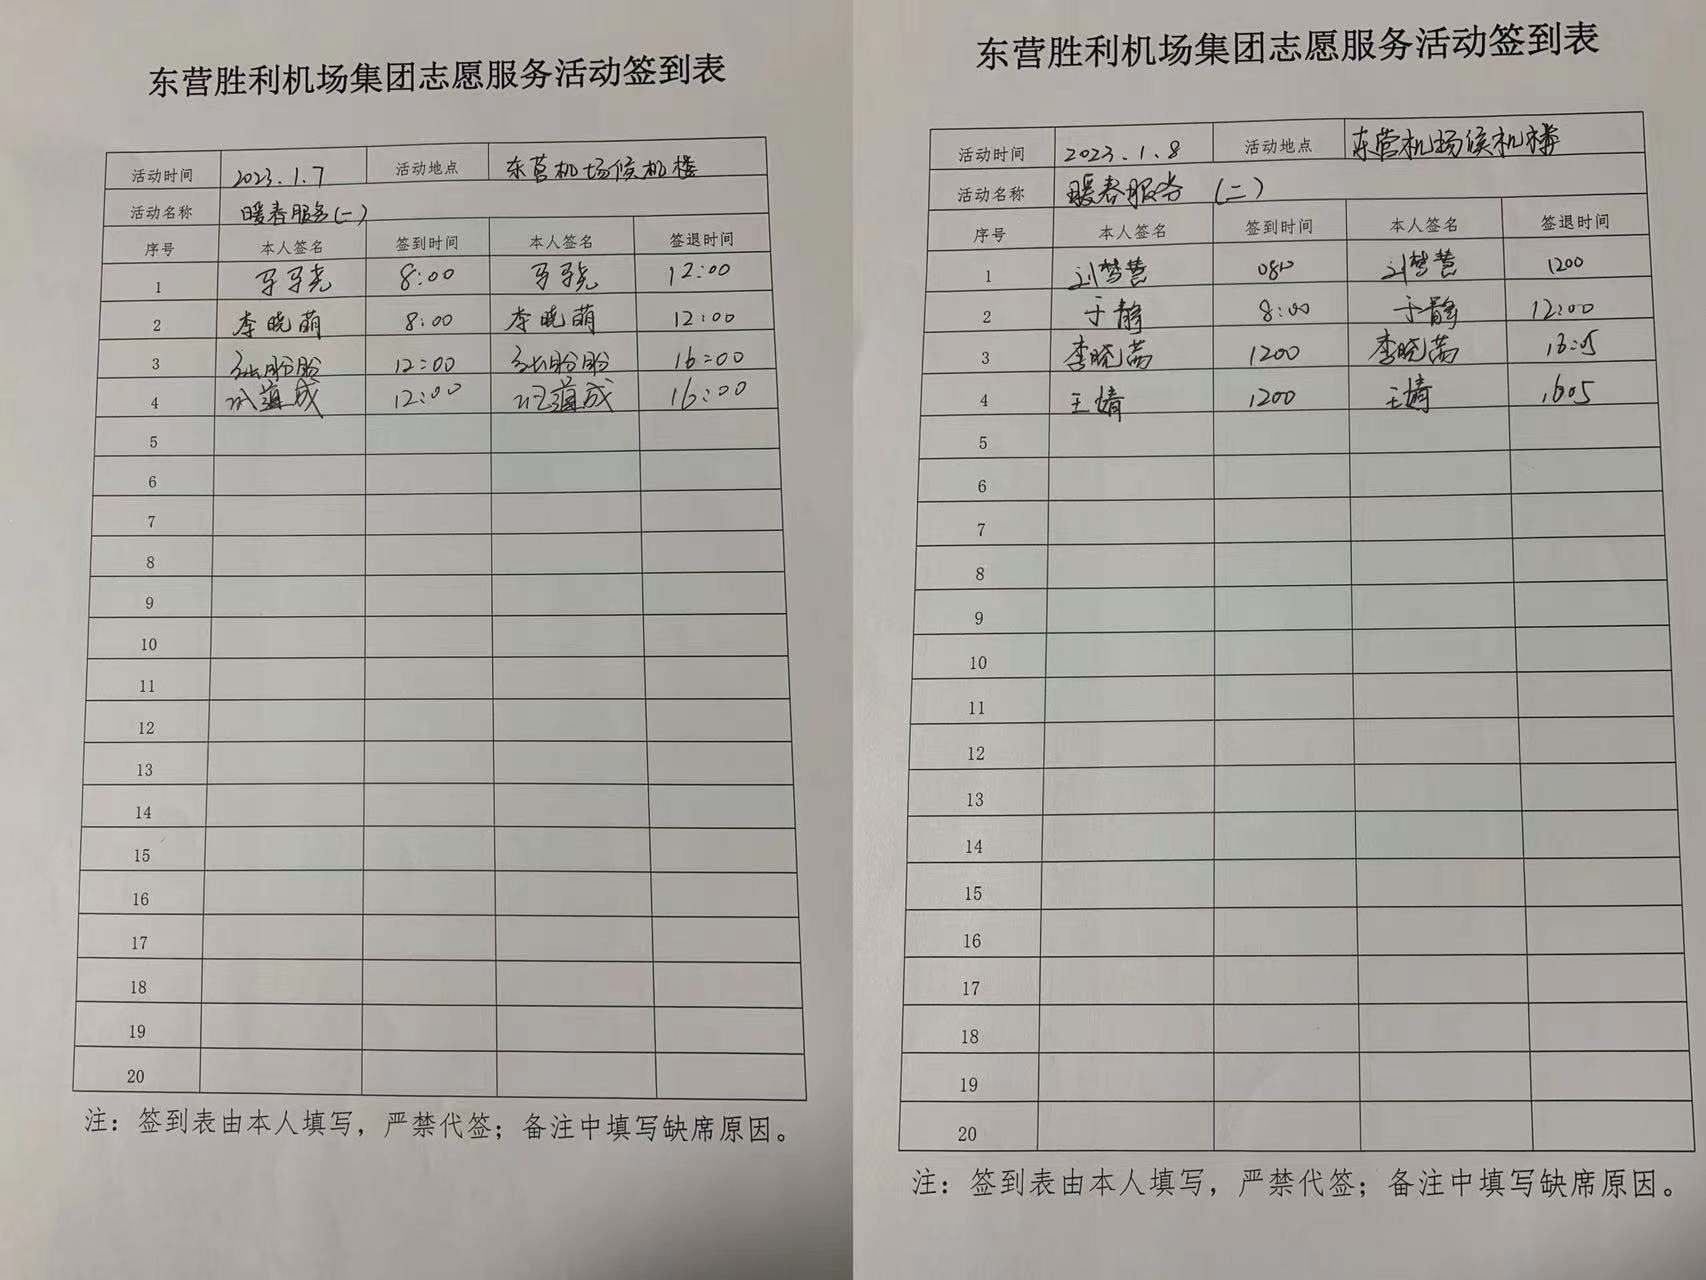 东营胜利机场集团志愿服务活动签到表
活动时间 2023.1.7 活动地点 东营机场候机楼
活动名称 暖春服务(一)
序号 本人签名 签到时间 本人签名 签退时间
1 8:00 12:00
2 李晓萌 8:00 李晓萌 12:00
3 张盼盼 12:00 张盼盼 16:00
4 12:00 16:00
5
6
7
8
9
10
11
12
13
14
15
16
17
18
19
20
注：签到表由本人填写，严禁代签；备注中填写缺席原因。
东营胜利机场集团志愿服务活动签到表
活动时间 2023.1.8 活动地点 东营机场候机楼
活动名称 暖春服务 (二)
序号 本人签名 签到时间 本人签名 签退时间
1 刘梦慧 刘梦慧 1200
2 于静 8:00 于静 12:00
3 李晓茜 1200 李晓茜 16:05
4 王婧 1200 王婧 1605
5
6
7
8
9
10
11
12
13
14
15
16
17
18
19
20
注：签到表由本人填写，严禁代签；备注中填写缺席原因。